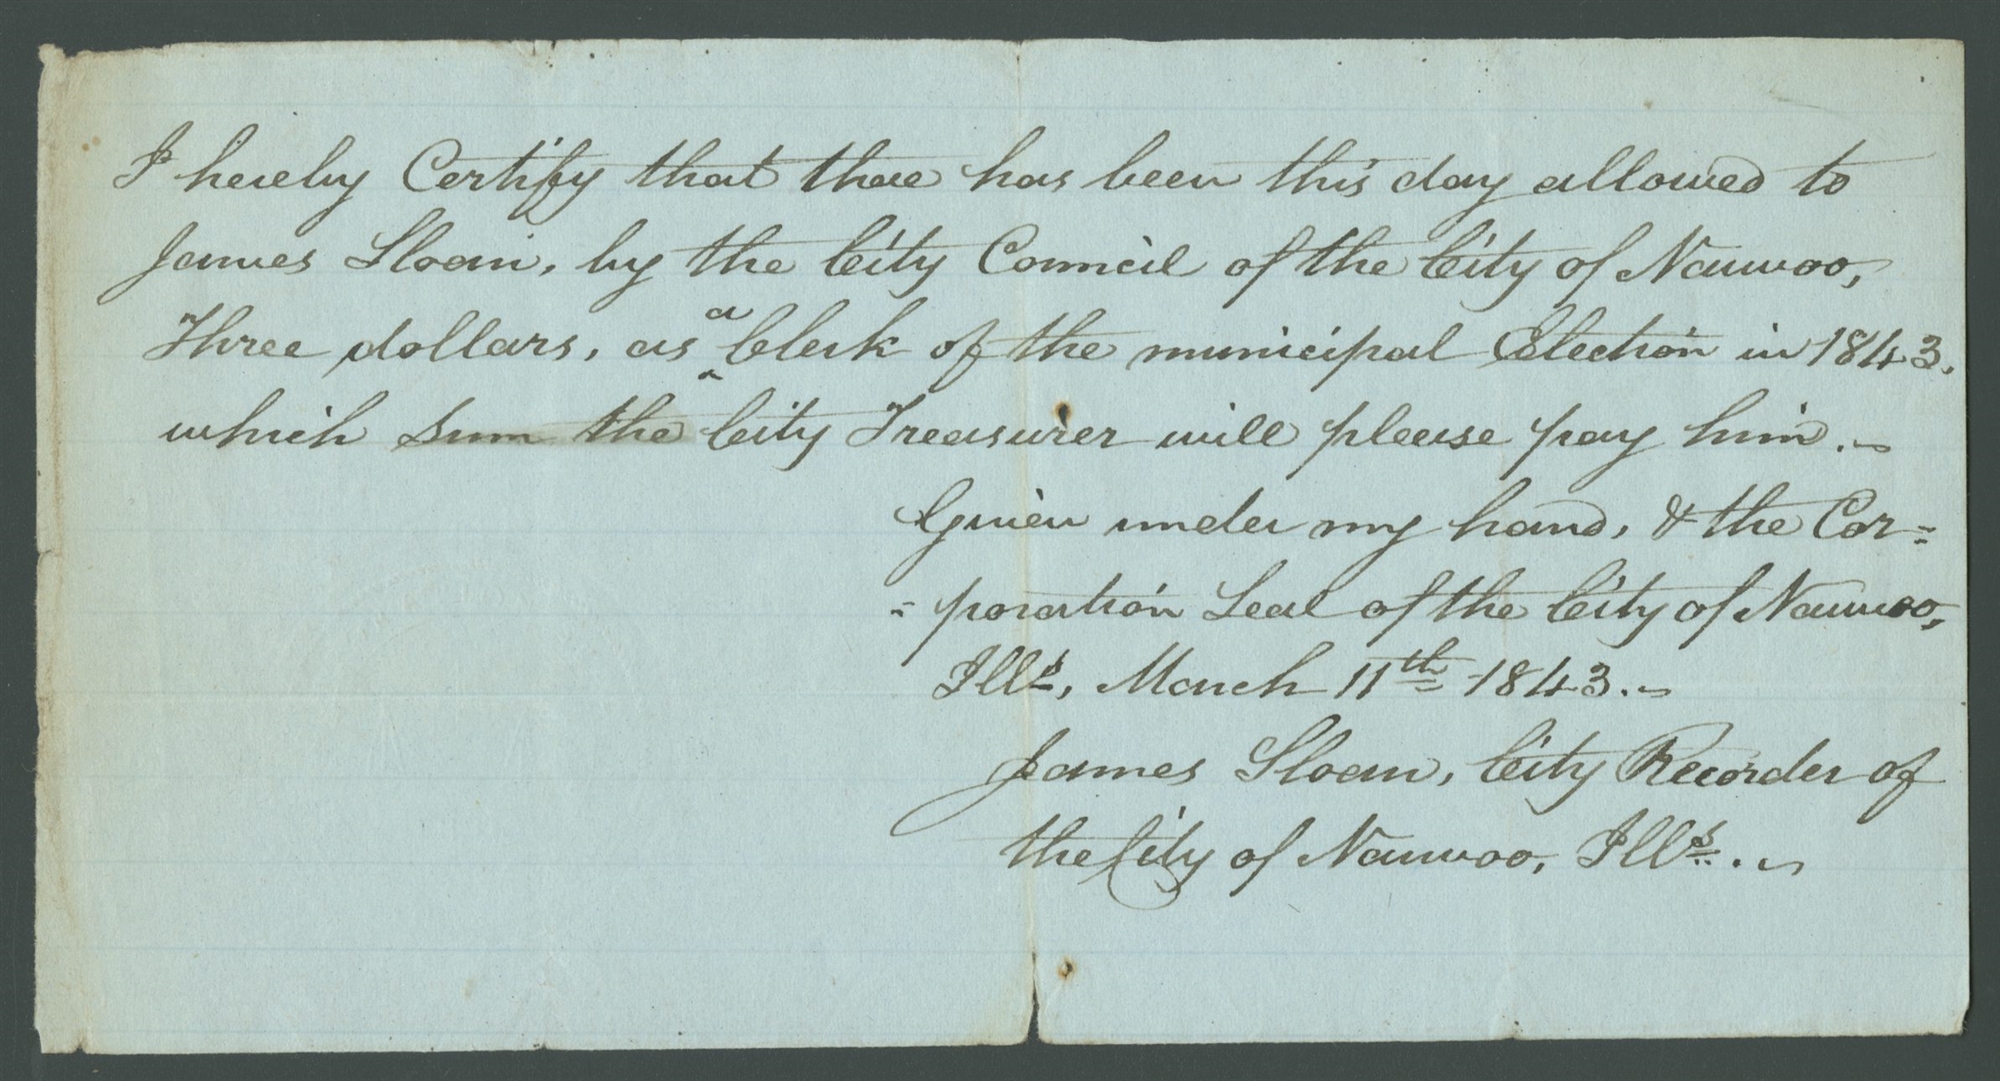 I hereby Certify that there has been this day allowed to
James Sloan, by the City Council of the City of Nauvoo,
Three dollars, as a Clerk of the municipal Election in 1843.
which sum the City Treasurer will please pay him.
Given under my hand, & the Cor=
=poration Seal of the City of Nauvoo,
Ills, March 11th 1843.
James Sloan, City Recorder of
the City of Nauvoo, Ills.